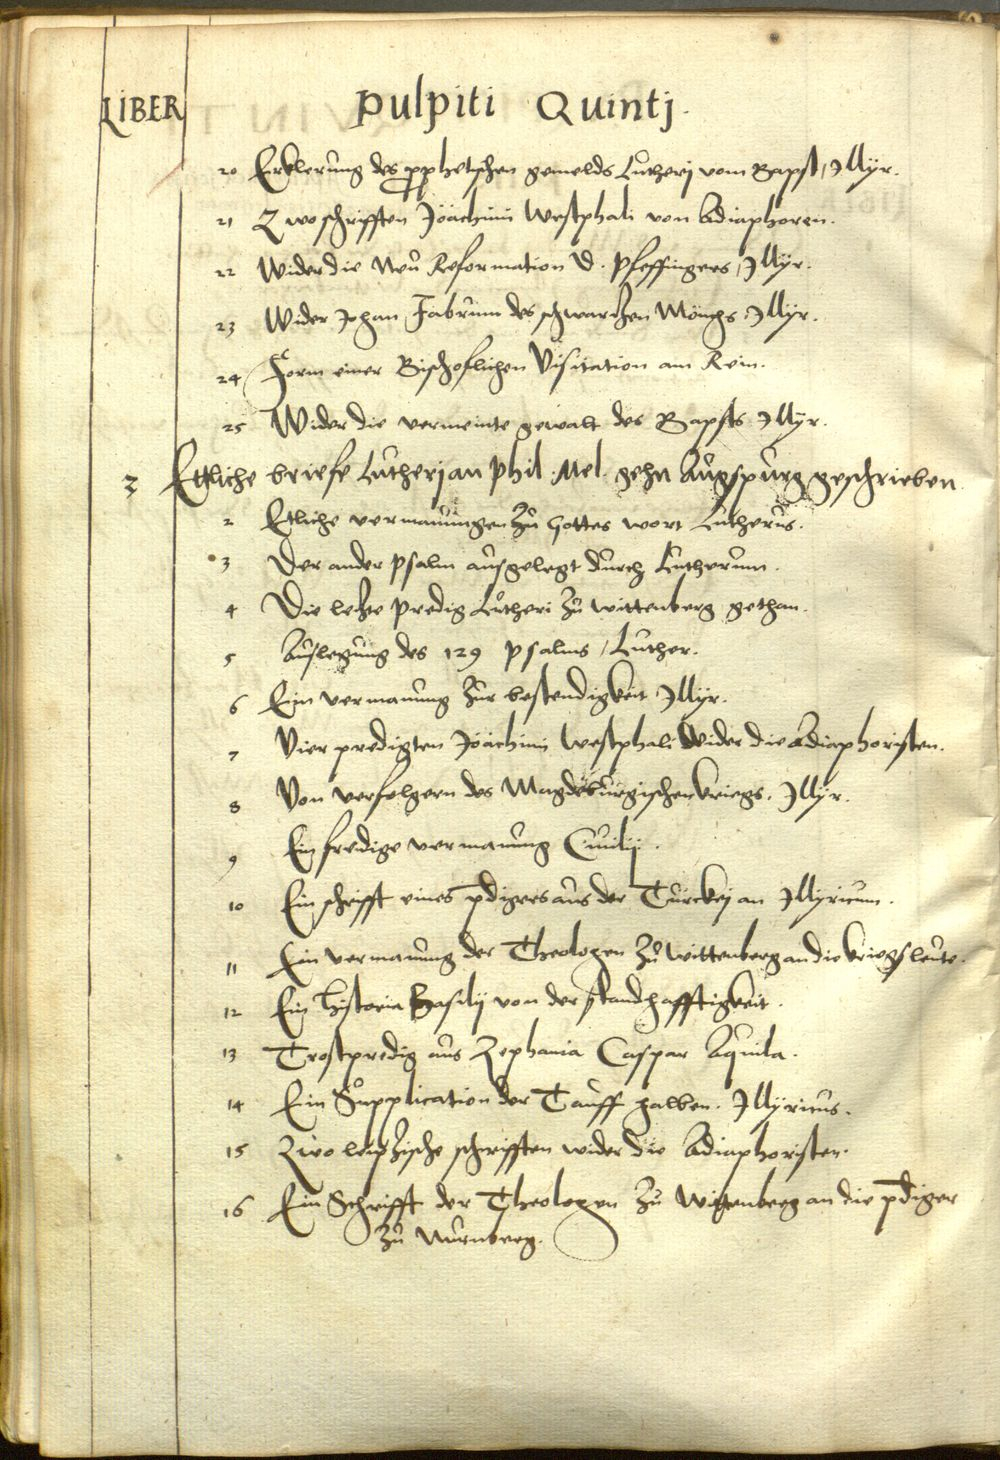 LIBER Pulpiti Quintj.
20 Erklerung des prophetischen gemelds Lutherj vom Bapst, Illyr.
21 Zwo schrifften Joachimi Westphali von Adiaphoren.
22 Wider die Neu Reformation D. Pfeffingers, Illyr.
23 Wider Johan Fabrum des schwartzen Mönchs, Illyr.
24 Form einer Bischoflichen Visitation am Rein.
25 Wider die vermeinte gewalt des Bapsts Illyr.
3 Ettliche briefe Lutherj an Phil. Mel. gehn Augspurg geschrieben
2 Etliche vermanungen zu Gottes wort Lutherus.
3 Der ander Psalm ausgelegt durch Lutherum.
4 Die letzte Predig Lutheri zu Wittenberg gethan.
5 Auslegung des 129 Psalms, Luther.
6 Ein vermanung zur bestendigkeit, Illyr.
7 Vier predigten Joachimi Westphali wider die Adiaphoristen.
8 Von verfolgern des Magdeburgischen kriegs. Illyr.
9 Ein fredige vermanung
10 Ein schrifft eines pdigers aus der Turckej an Illyricum.
11 Ein vermanung der Theologen zu Wittenberg an die kriegsleute.
12 Ein historia Basilij von der standhafftigkeit.
13 Trostpredig aus Zephania Caspar Aquila.
14 Ein Supplication der Tauff halben. Illyricus.
15 Zwo leipzische schrifften wider die Adiaphoristen.
16 Ein Schrifft der Theologen zu Wittenberg an die pdiger
zu Nurnberg.